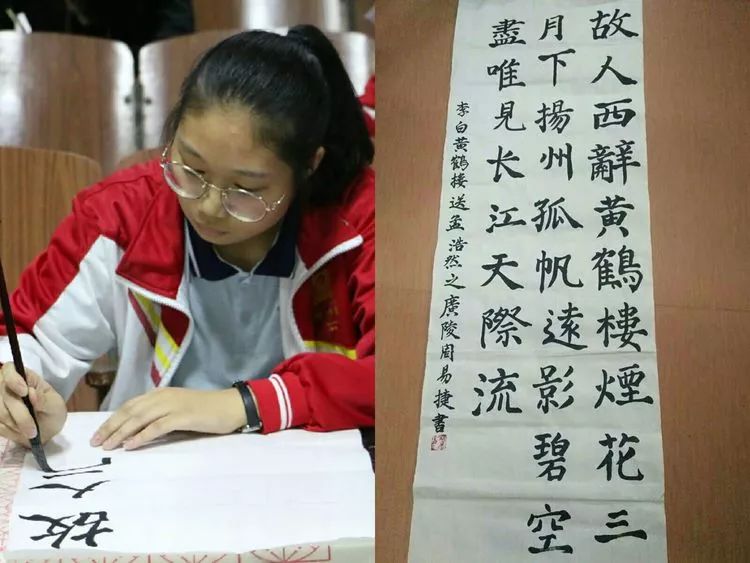 故人
故人西辭黄鶴樓煙花三
月下揚州孤帆遠影碧空
盡唯見长江天際流
李白黄鶴楼送孟浩然之廣陵周易捷書